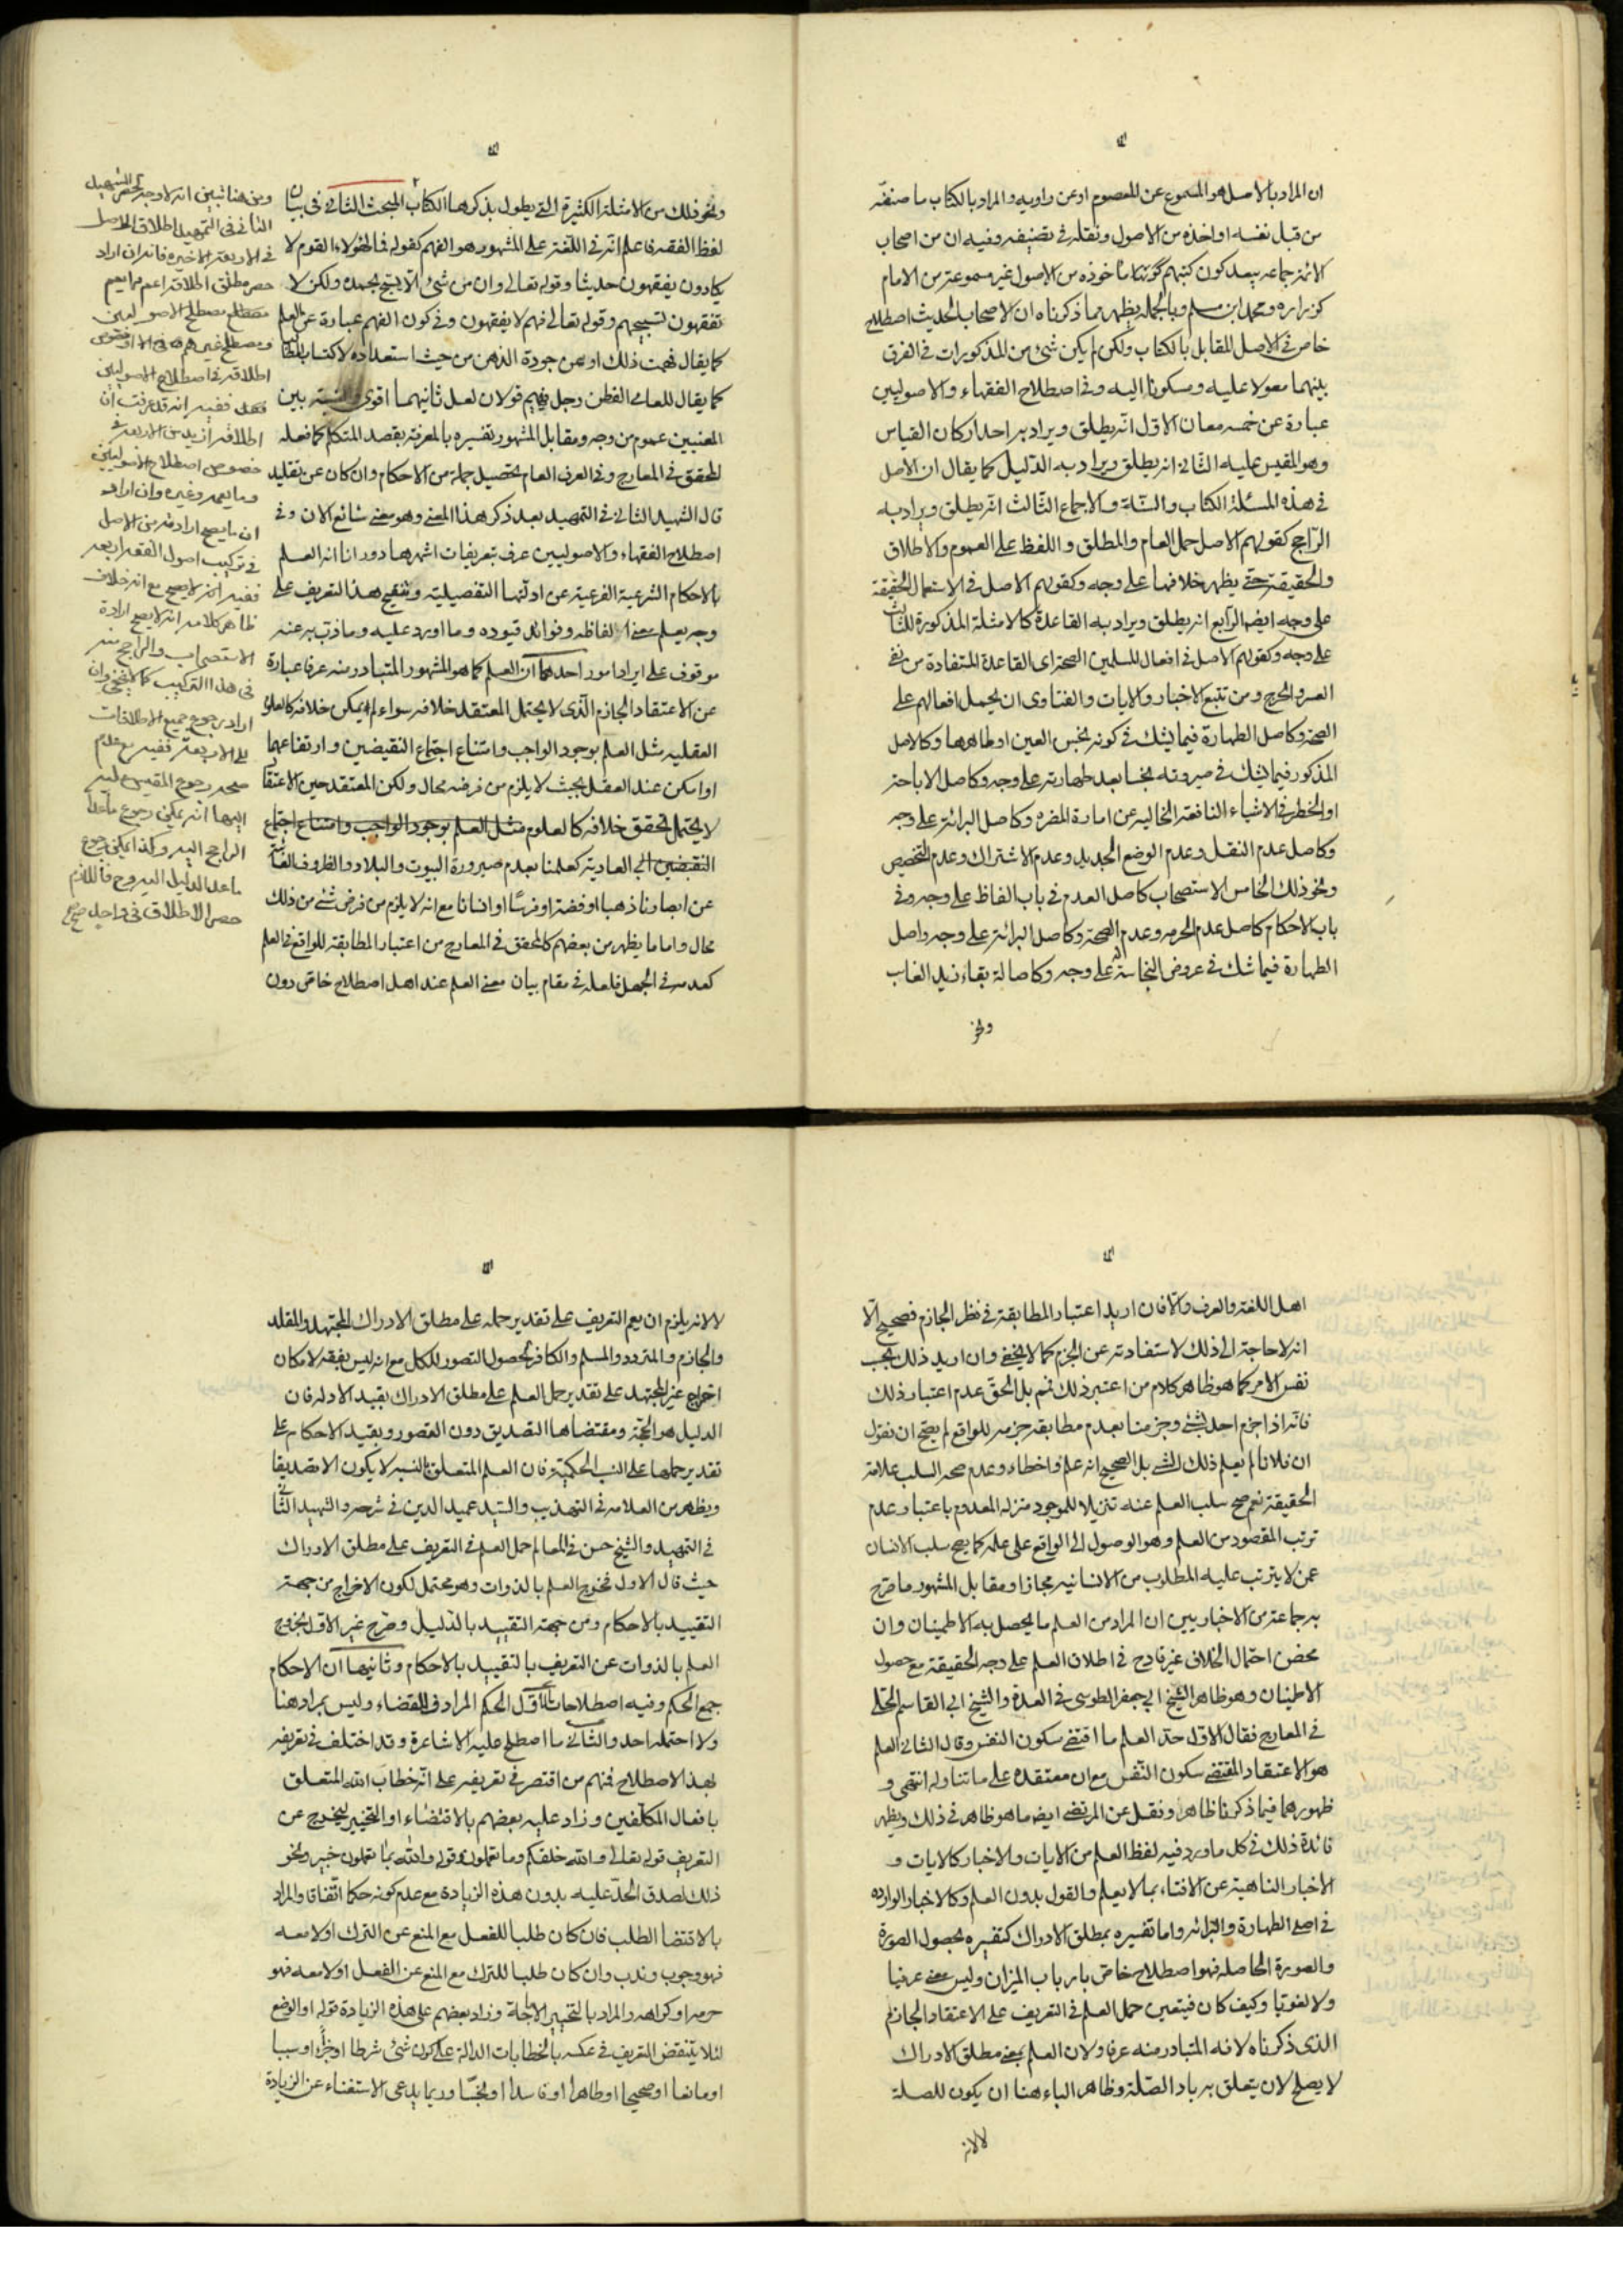 ان المراد بالاصل هو المسموع عن المعصوم او عن راويه والمراد بالكتاب ما صنفه
من قبل نفسه او اخذه من الاصول ونقله في تصنيفه وفيه ان من اصحاب
الائمة جماعه يبعد كون كتبهم ماخوذه من الاصول غير مسموعة من الامام
كزراره ومحمد ابن مسلم وبالجمله يظهر مما ذكرناه ان لاصحاب الحديث اصطلاح
خاص في الاصل المقابل بالكتاب ولكن لم يكن شئ من المذكورات في الفرق
بينهما معولا عليه ومسكونا اليه وفي اصطلاح الفقهاء والاصوليين
عبارة عن خمسه معان الاول انه يطلق ويراد به احد اركان القياس
وهو المقيس عليه الثاني انه يطلق ويراد به الدليل كما يقال ان الاصل
في هذه المسئلة الكتاب والسنة والاجماع الثالث انه يطلق ويراد به
الراجح كقولهم الاصل حمل العام والمطلق واللفظ على العموم والاطلاق
والحقيقة حتى يظهر خلافها على وجه وكقولهم الاصل في الاستعمال الحقيقة
على وجه ايضا الرابع انه يطلق ويراد به القاعدة كالامثلة المذكورة للثالث
على وجه وكقولهم الاصل في افعال المسلمين الصحة اى القاعدة المستفادة من نفي
العسر والحرج ومن تتبع الاخبار والايات والفتاوى ان يحمل افعالهم على
الصحة وكاصل الطهارة فيما يشك في كونه نجس العين او طاهرها وكالاصل
المذكور فيما يشك في صيرورته نجسا بعد طهارته على وجه وكاصل الاباحة
او الخطر في الاشياء النافعة الخاليه عن امارة المفسره وكاصل البرائة على وجه
وكاصل عدم النقل وعدم الوضع الجديد وعدم الاشتراك وعدم التخصيص
ونحو ذلك الخامس الاستصحاب كاصل العدم في باب الفاظ على وجه وفي
باب الاحكام كاصل عدم الحرمه وعدم الصحة وكاصل البرائة على وجه واصل
الطهارة فيما شك في عروض النجاسة على وجه وكاصالة بقاء زيد الغايب
ونحو
ونحو ذلك من الامثلة الكثيرة التي يطول بذكرها الكتاب المبحث الثاني في بيان
لفظ الفقه فاعلم انه في اللغة على المشهور هو الفهم كقوله فما لهؤلاء القوم لا
يكادون يفقهون حديثا وقوله تعالى وان من شئ الا يسبح بحمده ولكن لا
تفقهون تسبيحهم وقوله تعالى فهم لا يفقهون وفي كون الفهم عبارة عن العلم
كما يقال فهمت ذلك او عن جودة الذهن من حيث استعداده لاكتساب المطالب
كما يقال للعامى الفطن رجل فهيم قولان لعل ثانيهما اقوى والنسبة بين
المعنيين عموم من وجه ومقابل المشهور تفسيره بالمعرفة بقصد المتكلم كما فعله
المحقق في المعارج وفي العرف العام تحصيل جملة من الاحكام وان كان عن تقليد
قال الشهيد الثاني في التمهيد بعد ذكر هذا المعنى وهو معنى شائع الان وفي
اصطلاح الفقهاء والاصوليين عرف بتعريفات اشهرها دورانا انه العلم
بالاحكام الشرعية الفرعية عن ادلتها التفصيلية وتنقيح هذا التعريف على
وجه يعلم معنى الفاظه وفوائد قيوده وما اورد عليه وما ذب به عنه
موقوف على ايراد امور احدها ان العلم كما هو المشهور المتبادر منه عرفا عبارة
عن الاعتقاد الجازم الذى لا يحتمل المعتقد خلافه سواء لم يمكن خلافه كالعلوم
العقليه مثل العلم بوجود الواجب وامتناع اجتماع النقيضين وارتفاعهما
او امكن عند العقل بحيث لا يلزم من فرضه محال ولكن المعتقد حين الاعتقاد
لا يحتمل تحقق خلافه كالعلوم مثل العلم بوجود الواجب وامتناع اجتماع
النقيضين الى العادية كعلمنا بعدم صيرورة البيوت والبلاد والظروف الغائبة
عن ابصارنا ذهبا او فضة او فرسا او انسانا مع انه لا يلزم من فرض شئ من ذلك
محال واما ما يظهر من بعضهم كالمحقق في المعارج من اعتبار المطابقة للواقع في العلم
كعدمه في الجهل فلعله في مقام بيان معنى العلم عند اهل اصطلاح خاص دون
ومن هنا تبين انه لا وجه لحصر الشهيد
الثاني في التمهيد اطلاق الاصل
في الاربعة الاخيره فانه ان اراد
حصر مطلق اطلاقه اعم مما يعم
مصطلح الاصوليين
ومصطلح غيرهم
اطلاقه في اصطلاح الاصوليين
فقط ففيه انه قد عرفت ان
اطلاقه ازيد من الاربعة في
خصوص اصطلاح الاصوليين
وما يعمه وغيره وان اراد
ان ما يصح ارادته من الاصل
في تركيب اصول الفقه اربعه
ففيه انه لا يصح مع انه خلاف
ظاهر كلامه انه لا يصح ارادة
الاستصحاب والراجح منه
في هذا التركيب كما لا يخفى وان
اراد رجوع جميع الاطلاقات
الى الاربعة ففيه مع عدم
صحه رجوع المقيس عليه
اليها انه يمكن رجوع ما عدا
الراجح اليه وكذا يمكن رجوع
ما عدا الدليل اليه وح فاللازم
حصر الاطلاق في واحد صح
اهل اللغة والعرف والا فان اريد اعتبار المطابقة في نظر الجازم فصحيح الا
انه لا حاجة الى ذلك لاستفادته عن الجزم كما لا يخفى وان اريد ذلك بحسب
نفس الامر كما هو ظاهر كلام من اعتبر ذلك فم بل الحق عدم اعتبار ذلك
فانه اذا جزم احد بشئ وجزمنا بعدم مطابقة جزمه للواقع لم يصح ان نقول
ان فلانا لم يعلم ذلك الشئ بل الصحيح انه علم واخطاء وعدم صحه السلب علامة
الحقيقة نعم صح سلب العلم عنه تنزيلا للموجود منزله المعدوم باعتبار عدم
ترتب المقصود من العلم وهو الوصول الى الواقع على علمه كما يصح سلب الانسان
عمن لا يترتب عليه المطلوب من الانسانيه مجازا ومقابل المشهور ما صرح
به جماعة من الاخباريين ان المراد من العلم ما يحصل به الاطمينان وان
محض احتمال الخلاف غير قادح في اطلاق العلم على وجه الحقيقة مع حصول
الاطمينان وهو ظاهر الشيخ ابي جعفر الطوسى في العدة والشيخ ابي القاسم الحلى
في المعارج فقال الاول حد العلم ما اقتضى سكون النفس وقال الثاني العلم
هو الاعتقاد المقتضى سكون النفس مع ان معتقده على ما تناوله انتهى و
ظهورهما فيما ذكرنا ظاهر ونقل عن المرتضى ايضا ما هو ظاهر في ذلك ويظهر
فائدة ذلك في كل ما ورد فيه لفظ العلم من الايات والاخبار كالايات و
الاخبار الناهية عن الافتاء بما لا يعلم والقول بدون العلم وكالاخبار الوارده
في اصلى الطهارة والبرائه واما تفسيره بمطلق الادراك كتفسيره بحصول الصورة
والصورة الحاصله فهو اصطلاح خاص بارباب الميزان وليس معنى عرفيا
ولا لغويا وكيف كان فيتعين حمل العلم في التعريف على الاعتقاد الجازم
الذى ذكرناه لانه المتبادر منه عرفا ولان العلم بمعنى مطلق الادراك
لا يصلح لان يتعلق به باد الصلة وظاهر الباء هنا ان يكون للصلة
لا لانه
لا لانه يلزم ان يعم التعريف على تقدير حمله على مطلق الادراك المجتهد والمقلد
والجازم والمتردد والمسلم والكافر لحصول التصور للكل مع انه ليس بفقه لامكان
اخراج غير المجتهد على تقدير حمل العلم على مطلق الادراك بقيد الادله فان
الدليل هو الحجة ومقتضاها التصديق دون التصور وبقيد الاحكام على
تقدير حملها على النسب الحكمية فان العلم المتعلق بالنسبه لا يكون الا تصديقا
ويظهر من العلامه في التهذيب والسيد عميد الدين في شرحه والشهيد الثاني
في التمهيد والشيخ حسن في المعالم حمل العلم في التعريف على مطلق الادراك
حيث قال الاول فخرج العلم بالذوات وهو محتمل لكون الاخراج من جهة
التقييد بالاحكام ومن جهة التقييد بالدليل وصرح غير الاول بخروج
العلم بالذوات عن التعريف بالتقييد بالاحكام وثانيها ان الاحكام
جمع الحكم وفيه اصطلاحات الاول الحكم المرادف للقضاء وليس بمراد هنا
ولا احتمله احد والثاني ما اصطلح عليه الاشاعرة وقد اختلف في تعريفه
بهذا الاصطلاح فمنهم من اقتصر في تعريفه على انه خطاب الله المتعلق
بافعال المكلفين وزاد عليه بعضهم بالاقتضاء او التخيير ليخرج عن
التعريف قوله تعالى والله خلقكم وما تعملون وقوله والله بما تعملون خبير ونحو
ذلك لصدق الحد عليه بدون هذه الزيادة مع عدم كونه حكما اتفاقا والمراد
بالاقتضا الطلب فان كان طلبا للفعل مع المنع عن الترك او لا معه
فهو وجوب وندب وان كان طلبا للترك مع المنع عن الفعل او لا معه فهو
حرمه او كراهه والمراد بالتخيير الاباحة وزاد بعضهم على هذه الزيادة قوله او الوضع
لئلا ينتقض التعريف في عكسه بالخطابات الدالة على كون شئ شرطا او جزءا او سببا
او مانعا او صحيحا او طاهرا او فاسدا او نجسا وربما يدعى الاستغناء عن الزيادة